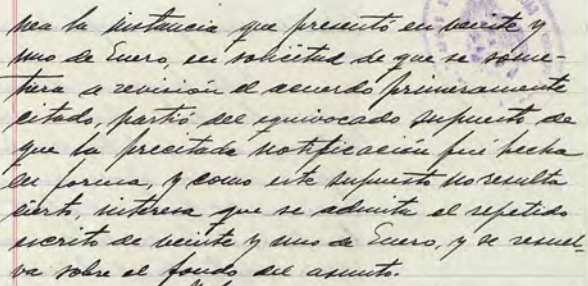 nea la instancia que presentó en veinte y
uno de Enero, en solicitud de que se some-
tiera a revisión el acuerdo primeramente
citado, partió del equivocado supuesto de
que la precitada notificación fué hecha
en forma, y como este supuesto no resulta
cierto, interesa que se admita el repetido
escrito de veinte y uno de Enero, y se resuel-
va sobre el fondo del asunto.